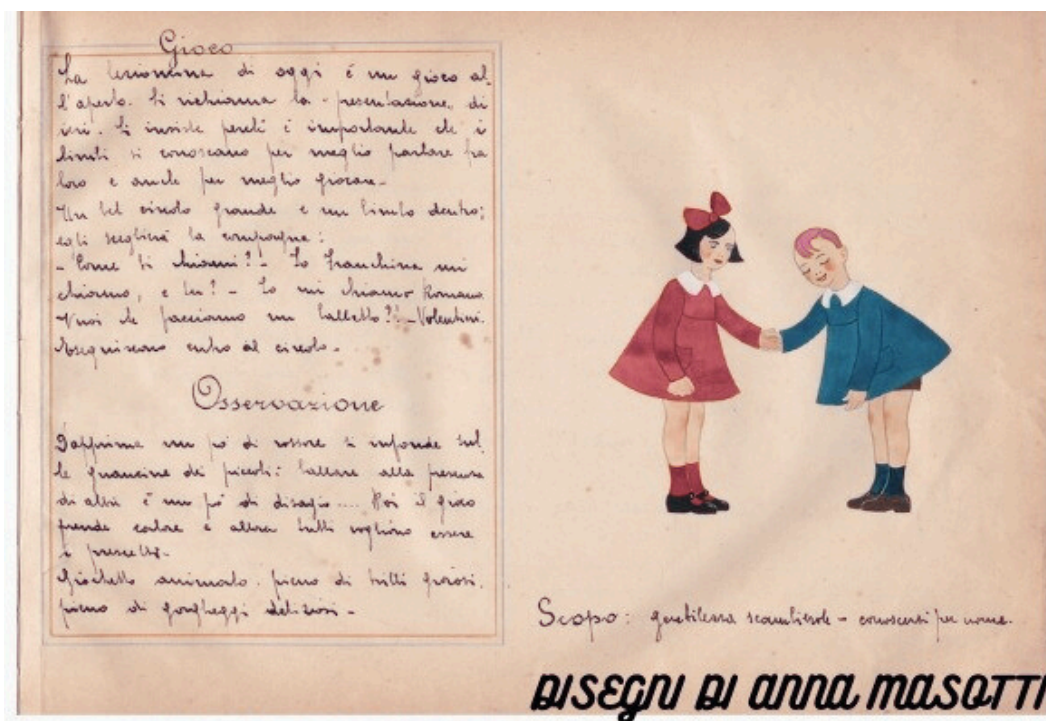 Gioco
La lezioncina di oggi è un gioco al-
l'aperto. Si richiama la "presentazione" di
ieri. Si insiste perché è importante che i
bimbi si conoscano per meglio parlare fra
loro e anche per meglio giocare -
Un bel circolo grande e un bimbo dentro;
egli sceglierà la compagna:
- Come ti chiami?! - Io Franchina mi
chiamo, e tu? - Io mi chiamo Romano
Vuoi che facciamo un balletto?! - Volentieri.
Eseguiscono entro al circolo -
Osservazione
Dapprima un pò di rossore si infonde sul-
le guancine dei piccoli: ballare alla presenza
di altri è un pò di disagio .... Poi il gioco
prende calore e allora tutti vogliono essere
i prescelti -
Giochetto animato. pieno di trilli gioiosi.
pieno di gorgheggi deliziosi -
Scopo: gentilezza scambievole - conoscersi per nome.
DISEGNI DI ANNA MASOTTI